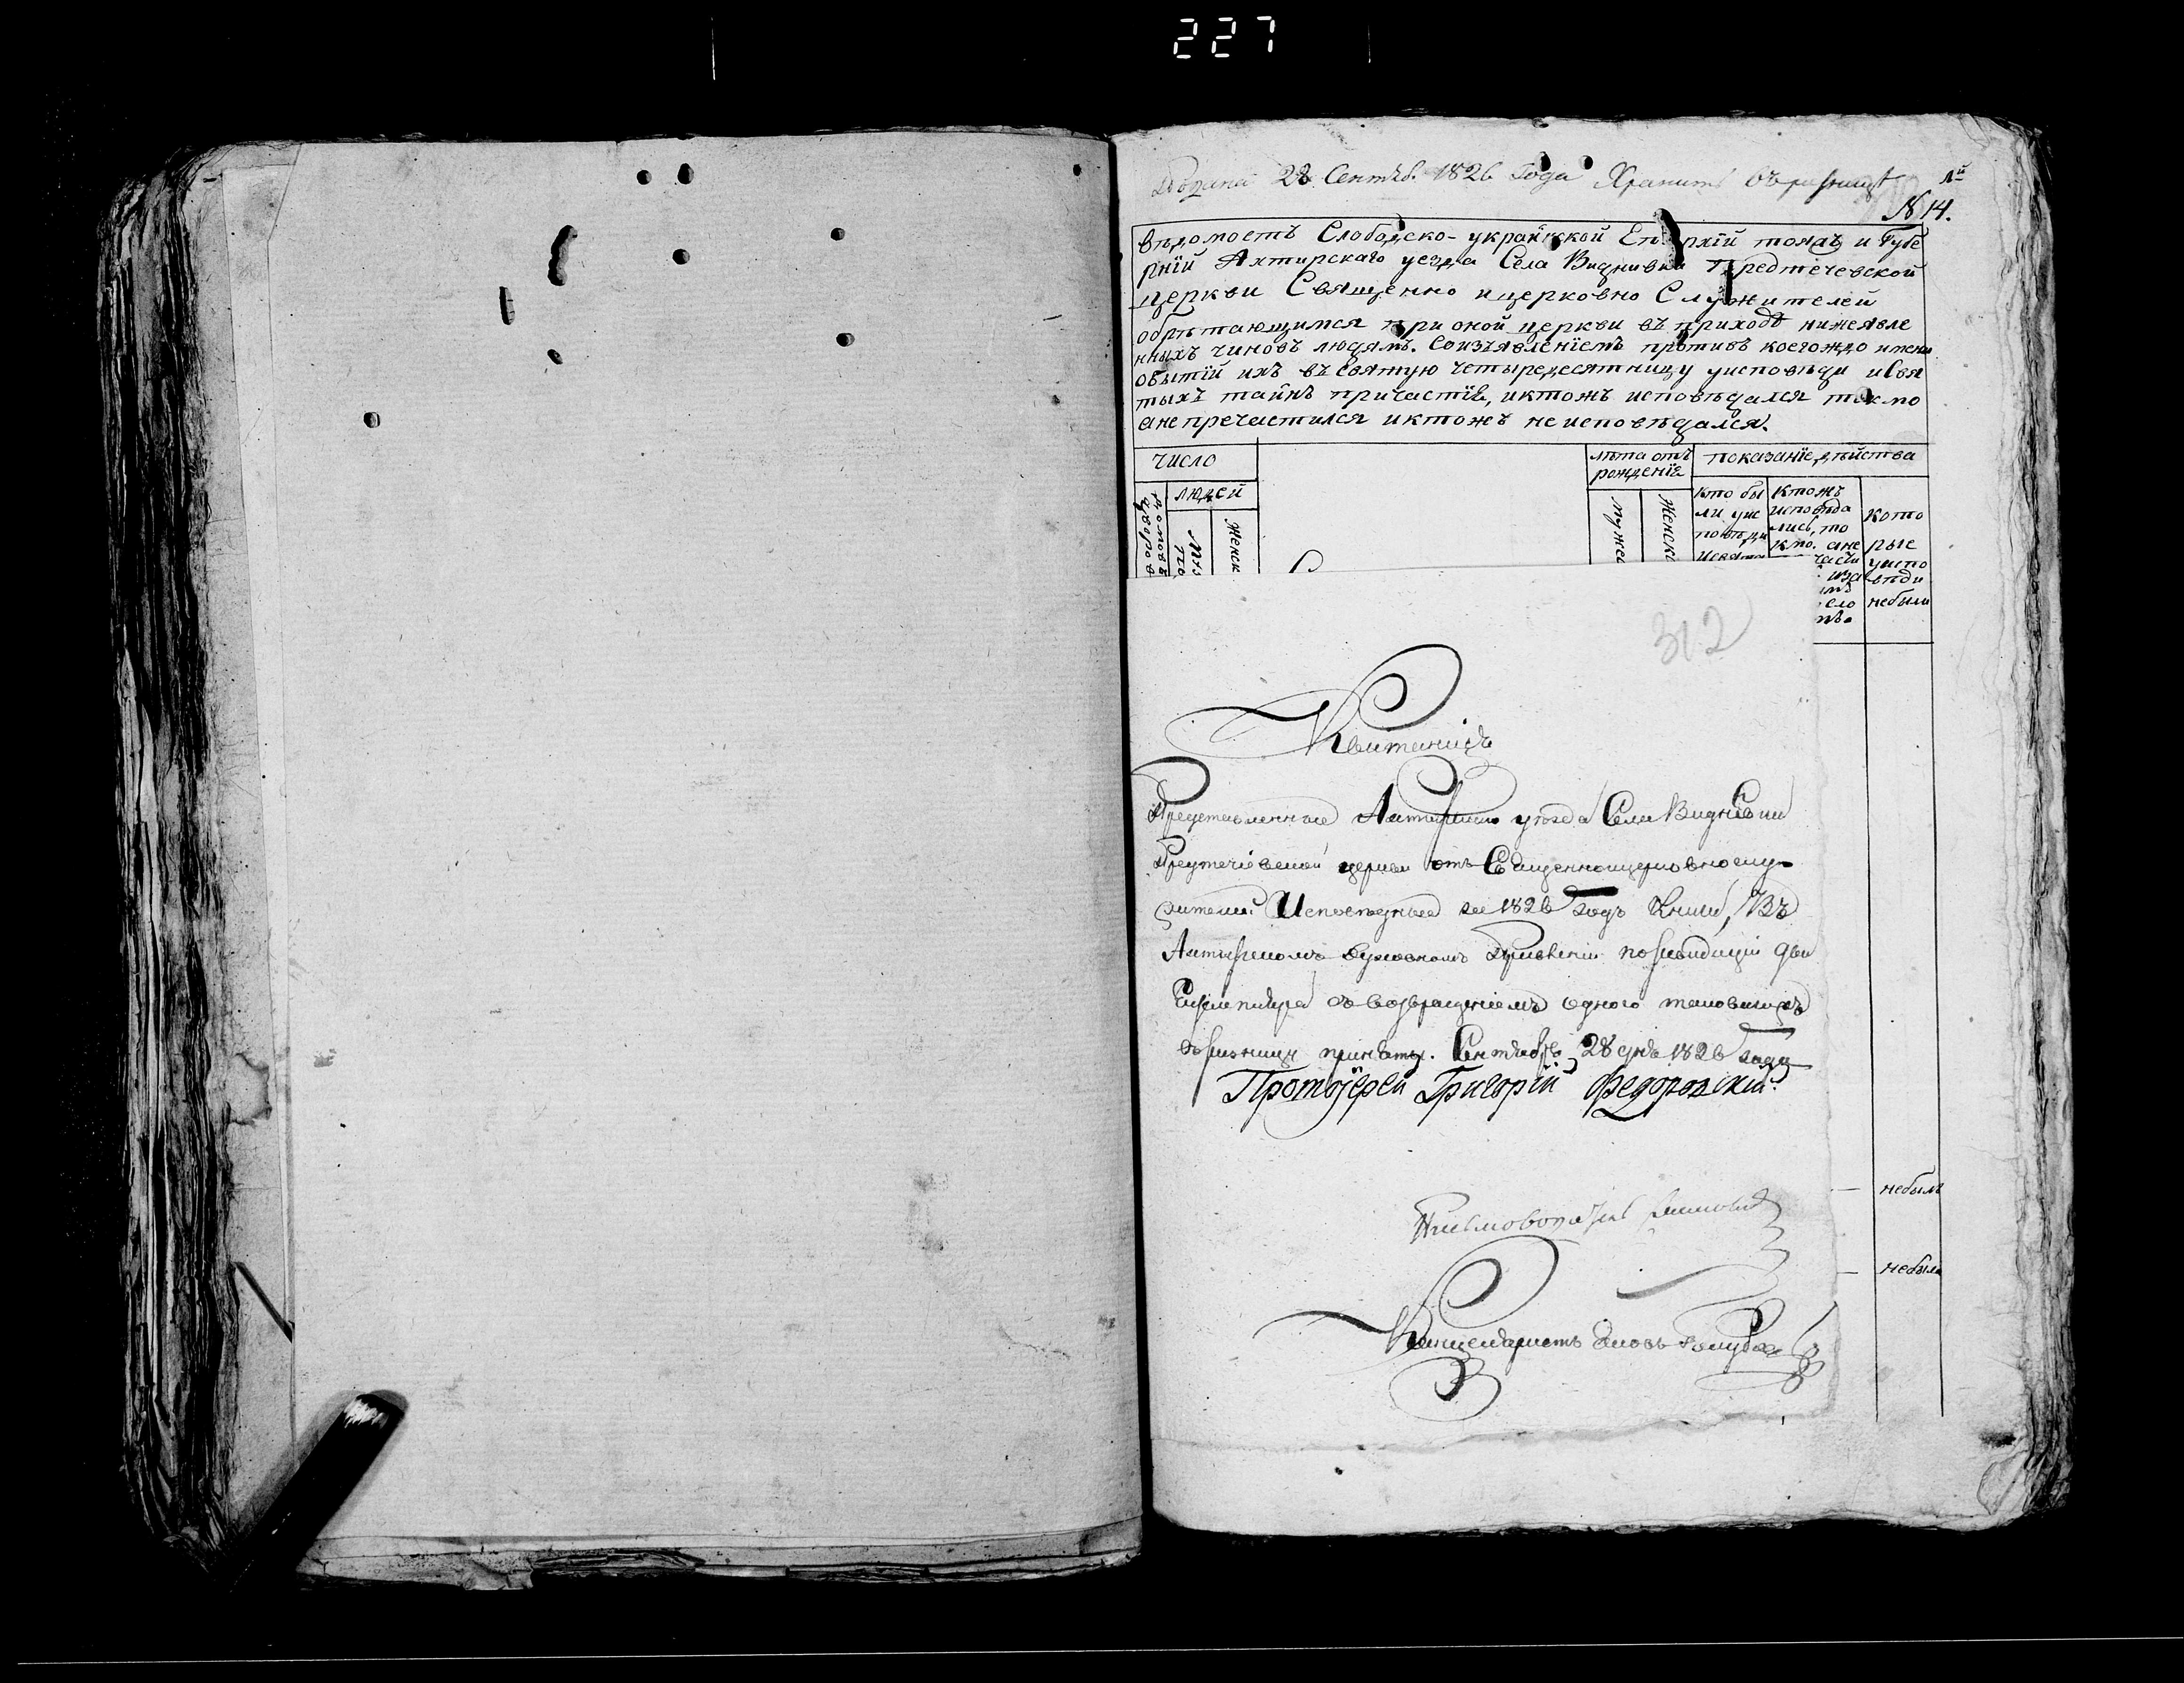 227
Подана 28 Сентяб. 1826 Года Хранить въ ризницѣ
№ 14.
Вѣдомость Слободско-украинской Епархїи тояжъ и Губе
рнїи Ахтирскаго уезда Села Виднивки Предтечевской
церкви Священно ицерковно Служителей
обрѣтающимся при оной церкви въ приходѣ нижеявле
нныхъ чиновъ людямъ. Соизъявленїемъ противъ коегождо имени
обытїи ихъ въ Святую Четыредесятницу уисповѣди иСвя
тыхъ тайнъ причастїя, иктожъ исповѣдался токмо
анепречастился иктожъ неисповѣдался.
Число
лѣта отъ
рожденїя
показанїе дѣйства
людей
домовъ
дворов
Женск
мужес
Женск
Кто бы
ли уис
повѣди
Ктожъ
исповѣда
лись, то
кмо. ане
Кото
рые
уиспо
вѣди
небыли
312
Квитанція
Представленные Ахтырскаго уѣзда Села Виднѣвки
Предтечіевской церкви отъ Священноцерковнослу-
жителей Исповѣдныя за 1826 годъ Книги, Въ
Ахтырскомъ Духовномъ Правленіи два
Екземпляра съ возвращеніемъ одного таковыхъ
приняты. Сентября 28 дня 1826 года
Протоїерей Григорїй Федоровскїй.
Писмоводитель
Канцеляристъ
небылъ
небыла